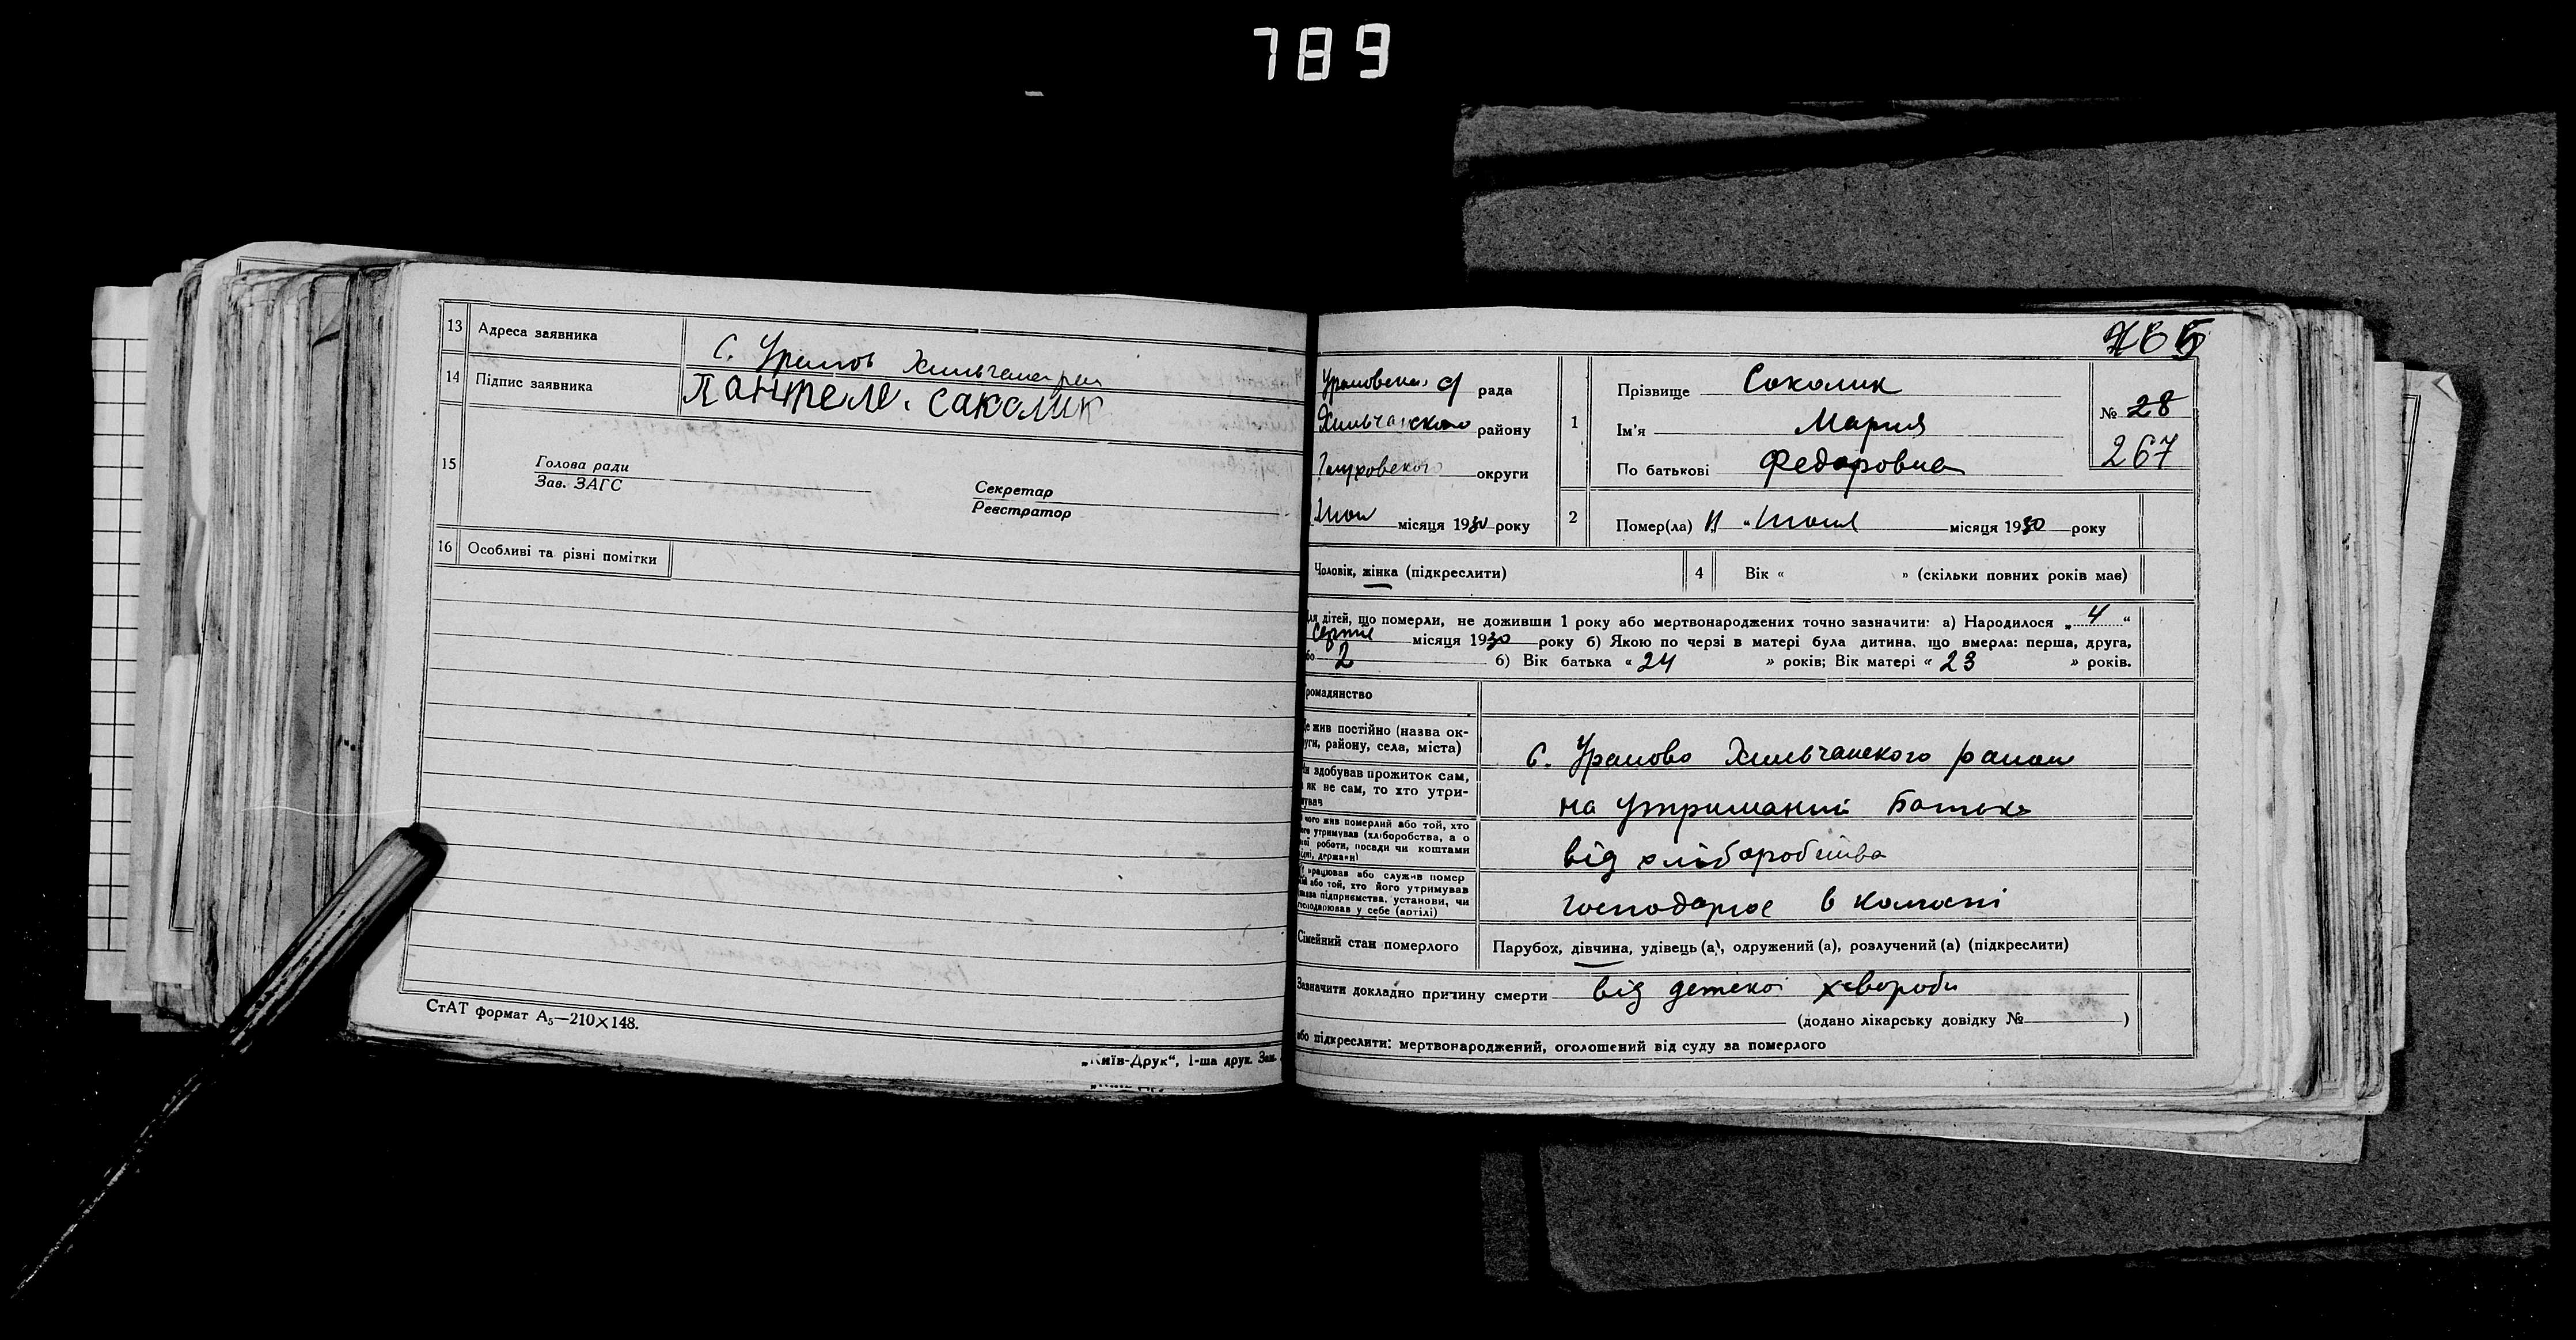 789
13 Адреса заявника
с. Уралов Хильчан. рай
14 Підпис заявника
Пантеле. саколик
15
Голова ради
Зав. ЗАГС
Секретар
Реєстратор
16 Особливі та різні помітки
СтАТ формат А₅—210×148.
„Київ-Друк“, 1-ша друк. Зам.
рада
Хильчанского району
Глуховского округи
місяця 1930 року
1
Прізвище Соколик
Ім'я Мария
По батькові Федоровна
№ 28
267
2
Помер(ла) місяця 1930 року
Чоловік, жінка (підкреслити)
4 Вік « » (скільки повних років має)
для дітей, що померли, не доживши 1 року або мертвонароджених точно зазначити: а) Народилося „ 4 “
місяця 1930 року б) Якою по черзі в матері була дитина, що вмерла: перша, друга,
або 2 б) Вік батька « 24 » років; Вік матері « 23 » років.
Громадянство
Де жив постійно (назва ок-
руги, району, села, міста)
с. Уралово Хильчанского району
Чи здобував прожиток сам,
а як не сам, то хто утри-
мував
на утриманні батька
З чого жив померлий або той, хто
його утримував (хліборобства, а о
роботи, посади чи коштами
держави)
від хліборобства
Де працював або служив помер
лий або той, хто його утримував
(назва підприємства, установи, чи
господарював у себе (артілі)
господарює в
Сімейний стан померлого
Парубок, дівчина, удівець (а), одружений (а), розлучений (а) (підкреслити)
Зазначити докладно причину смерти від детскої хвороби
(додано лікарську довідку № )
або підкреслити: мертвонароджений, оголошений від суду за померлого